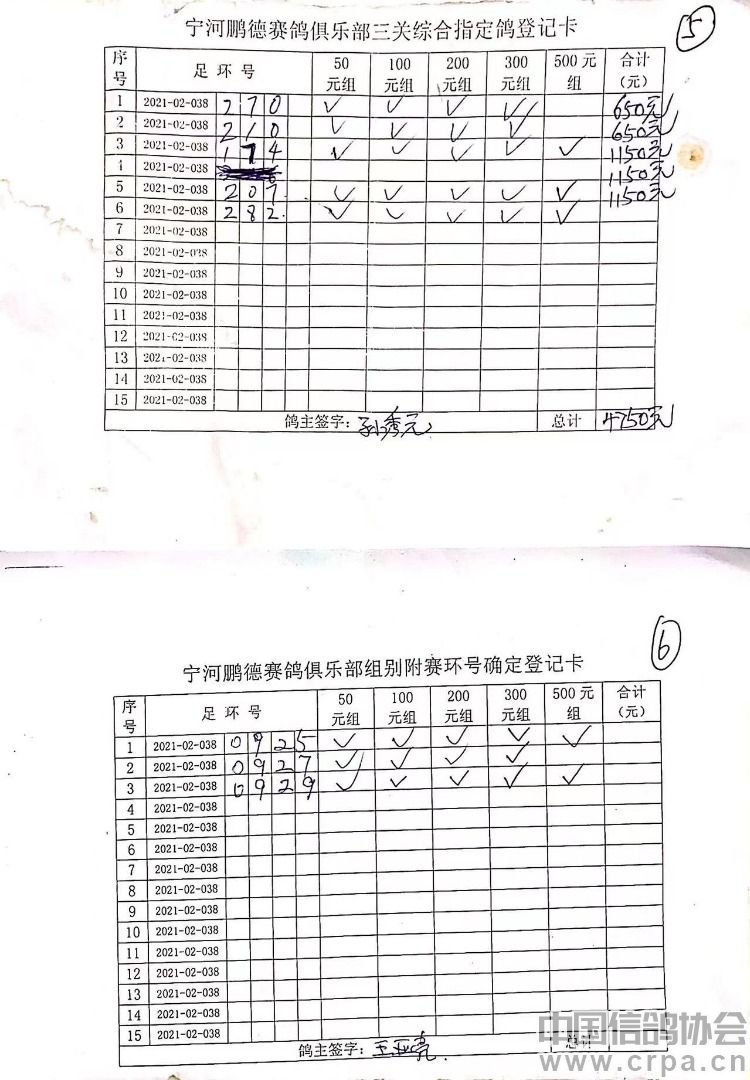 宁河鹏德赛鸽俱乐部三关综合指定鸽登记卡 ⑤
序号 足环号 50元组 100元组 200元组 300元组 500元组 合计(元)
1 2021-02-038 270 ✓ ✓ ✓ ✓ 650元
2 2021-02-038 210 ✓ ✓ ✓ ✓ 650元
3 2021-02-038 174 ✓ ✓ ✓ ✓ ✓ 1150元
4 2021-02-038 1150元
5 2021-02-038 207 ✓ ✓ ✓ ✓ ✓ 1150元
6 2021-02-038 282 ✓ ✓ ✓ ✓ ✓
7 2021-02-038
8 2021-02-038
9 2021-02-038
10 2021-02-038
11 2021-02-038
12 2021-02-038
13 2021-02-038
14 2021-02-038
15 2021-02-038
鸽主签字：孙秀元 总计 4750元
宁河鹏德赛鸽俱乐部组别附赛环号确定登记卡 ⑥
序号 足环号 50元组 100元组 200元组 300元组 500元组 合计(元)
1 2021-02-038 0925 ✓ ✓ ✓ ✓ ✓
2 2021-02-038 0927 ✓ ✓ ✓ ✓
3 2021-02-038 0929 ✓ ✓ ✓ ✓ ✓
4 2021-02-038
5 2021-02-038
6 2021-02-038
7 2021-02-038
8 2021-02-038
9 2021-02-038
10 2021-02-038
11 2021-02-038
12 2021-02-038
13 2021-02-038
14 2021-02-038
15 2021-02-038
鸽主签字：王亚亮 总计
中国信鸽协会
www.crpa.cn